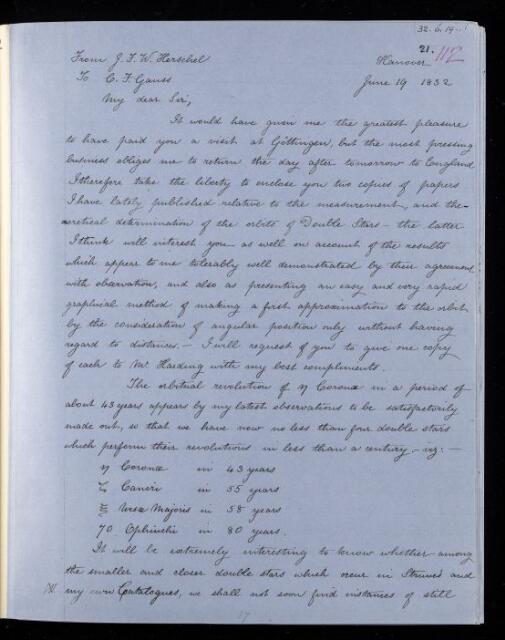 32.6.19
21. 112
From J. F. W. Herschel
Hanover
To C. F. Gauss
June 19 1832
My dear Sir,
It would have given me the greatest pleasure
to have paid you a visit at Göttingen, but the most pressing
business obliges me to return the day after tomorrow to England
I therefore take the liberty to enclose you two copies of papers
I have lately published relative to the measurement, and the-
oretical determination of the orbits of Double Stars - the latter
I think will interest you as well on account of the results
which appear to me tolerably well demonstrated by their agreement
with observation, and also as presenting an easy and very rapid
graphical method of making a first approximation to the orbit
by the consideration of angular position only without having
regard to distances. - I will request of you to give one copy
of each to Mr Harding with my best compliments.
The orbitual revolution of η Coronæ in a period of
about 43 years appears by my latest observations to be satisfactorily
made out, so that we have now no less than four double stars
which perform their revolutions in less than a century - viz: -
η Coronæ in 43 years
ζ Cancri in 55 years
ξ Ursæ Majoris in 58 years
70 Ophiuchi in 80 years.
It will be extremely interesting to know whether among
the smaller and closer double stars which occur in Struve's and
my own Catalogues, we shall not soon find instances of still